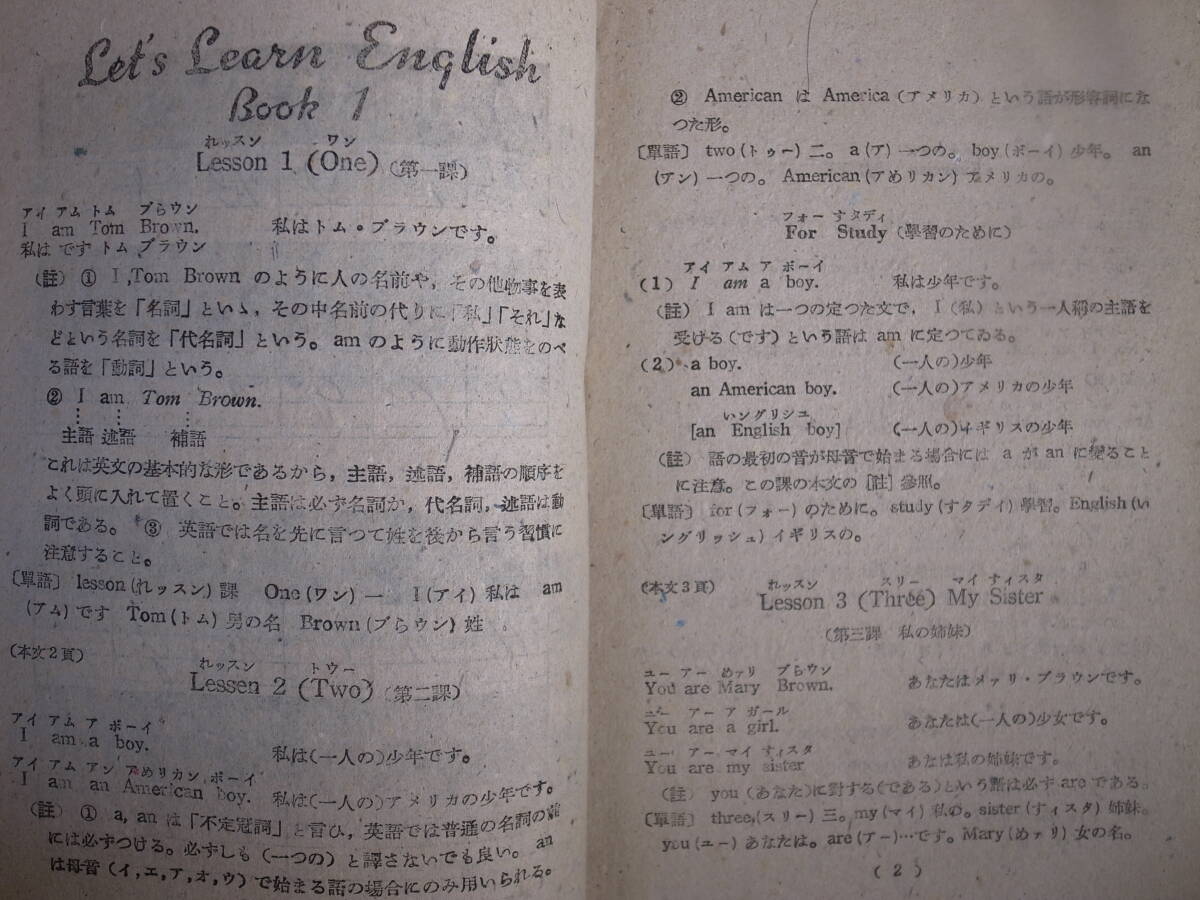 Let's Learn English
Book 1
れッスン ワン
Lesson 1 (One) (第一課)
アイ アム トム ブらウン
I am Tom Brown. 私はトム・ブラウンです。
私は です トム ブラウン
(註) ① I,Tom Brown のように人の名前や，その他物事を表
わす言葉を「名詞」といゝ，その中名前の代りに「私」「それ」な
どという名詞を「代名詞」という。am のように動作狀態をのべ
る語を「動詞」という。
② I am Tom Brown.
主語 述語 補語
これは英文の基本的な形であるから，主語，述語，補語の順序を
よく頭に入れて置くこと。主語は必ず名詞か，代名詞，述語は動
詞である。 ③ 英語では名を先に言つて姓を後から言う習慣に
注意すること。
〔單語〕 lesson (れッスン) 課 One (ワン) 一 I (アイ) 私は am
(アム) です Tom (トム) 男の名 Brown (ブらウン) 姓
(本文2頁)
れッスン トウー
Lessen 2 (Two) (第二課)
アイ アム ア ボーイ
I am a boy. 私は(一人の)少年です。
アイ アム アン アめリカン ボーイ
I am an American boy. 私は(一人の)アメリカの少年です。
(註) ① a, an は「不定冠詞」と言ひ，英語では普通の名詞の前
には必ずつける。必ずしも (一つの) と譯さないでも良い。 an
は母音 (イ，エ，ア，オ，ウ) で始まる語の場合にのみ用いられる。
② American は America (アメリカ) という語が形容詞にな
つた形。
〔單語〕 two (トゥー) 二。 a (ア) 一つの。 boy (ボーイ) 少年。 an
(アン) 一つの。 American (アめリカン) アメリカの。
フォー すタディ
For Study (學習のために)
アイ アム ア ボーイ
(1) I am a boy. 私は少年です。
(註) I am は一つの定つた文で， I (私) という一人稱の主語を
受ける (です) という語は am に定つてゐる。
(2) a boy. (一人の)少年
an American boy. (一人の)アメリカの少年
いングリシュ
[an English boy] (一人の)イギリスの少年
(註) 語の最初の音が母音で始まる場合には a が an に變ること
に注意。この課の本文の [註] 參照。
〔單語〕 for (フォー) のために。 study (すタデイ) 學習。English (い
ングリッシュ) イギリスの。
(本文3頁)
れッスン スリー マイ すィスタ
Lesson 3 (Three) My Sister
(第三課 私の姉妹)
ユー アー めァリ ブらウン
You are Mary Brown. あなたはメァリ・ブラウンです。
ユー アー ア ガール
You are a girl. あなたは(一人の)少女です。
ユー アー マイ すィスタ
You are my sister あなは私の姉妹です。
(註) you (あなた)に對する(である)という語は必ず are である。
〔單語〕 three, (スリー) 三。my (マイ) 私の。sister (すィスタ) 姉妹。
you (ユー) あなたは。are (アー)…です。Mary (めァリ) 女の名。
( 2 )